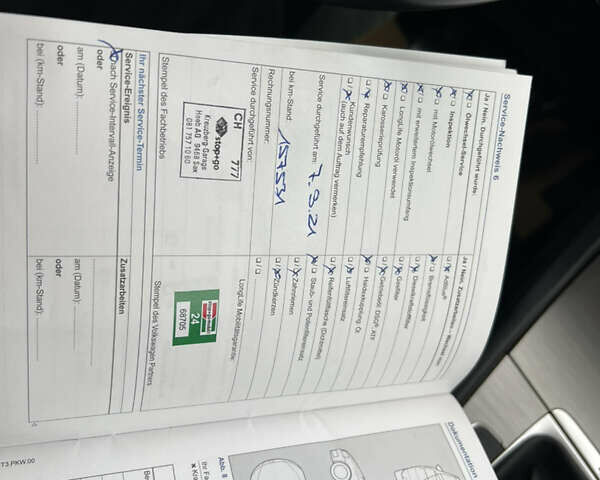 Service-Nachweis 6
Ja / Nein, Durchgeführt wurde:
Ölwechsel-Service
Inspektion
mit Motorölwechsel
mit erweitertem Inspektionsumfang
LongLife Motoröl verwendet
Karosserieprüfung
Reparaturempfehlung
Kundenwunsch
(auch auf dem Auftrag vermerken)
Service durchgeführt am: 7.9.21
bei km-Stand: 157531
Rechnungsnummer:
Service durchgeführt von:
CH 777
stop+go
Kreuzberg-Garage
081 757 10 60
Stempel des Fachbetriebs
Ihr nächster Service-Termin
Service-Ereignis
nach Service-Intervall-Anzeige
oder
am (Datum):
oder
bei (km-Stand):
Ja / Nein, Zusatzarbeiten
AdBlue®
Bremsflüssigkeit
Dieselkraftstofffilter
Getriebeöl, DSG®,
Haldexkupplung, Öl
Luftfiltereinsatz
Reifenfülldose (Dichtmittel)
Staub- und Pollenfiltereinsatz
Zahnriemen
Zündkerzen
LongLife Mobilitätsgarantie:
24
68705
Stempel des Volkswagen Partners
Zusatzarbeiten
am (Datum):
oder
bei (km-Stand):
Dokumentation
Abb. 8
T3.PKW.00